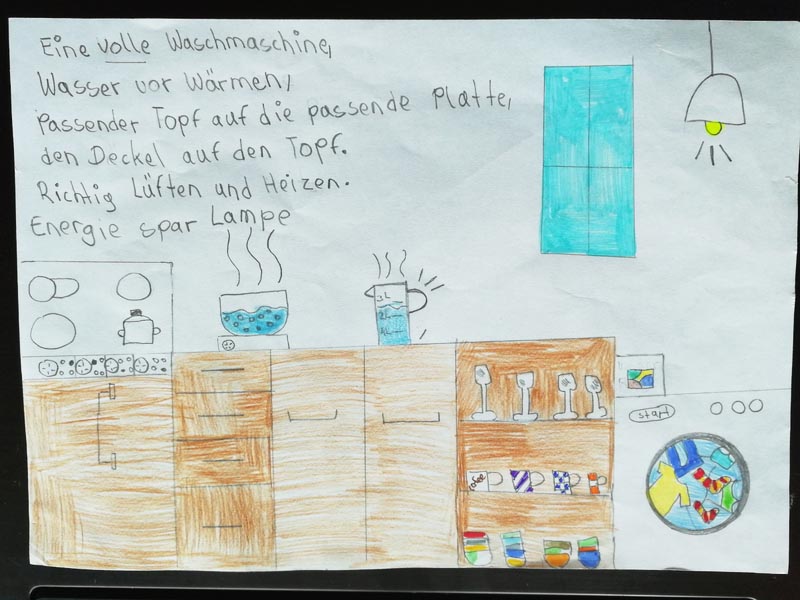 Eine volle Waschmaschine,
Wasser vor Wärmen,
Passender Topf auf die passende Platte,
den Deckel auf den Topf.
Richtig Lüften und Heizen.
Energie spar Lampe
3L
2L
1L
start